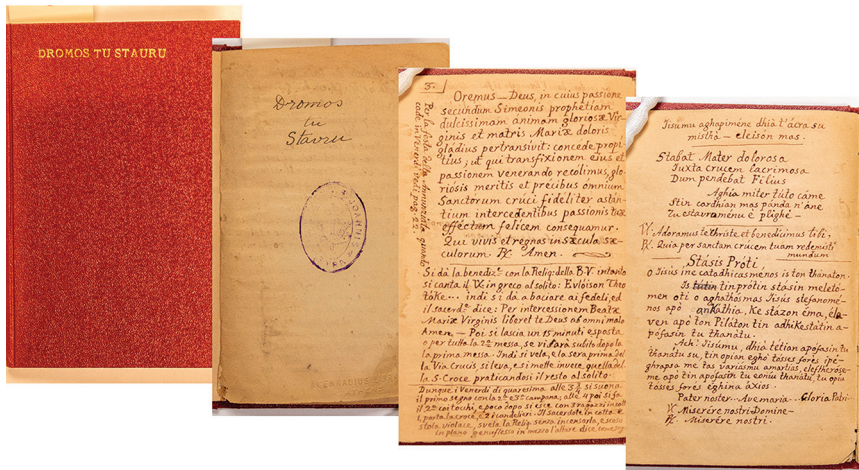 DROMOS TU STAURU
Dromos
tu
Stavru
3.
Oremus — Deus, in cuius passione
secundum Simeonis prophetiam
dulcissimam animam gloriosæ Vir-
ginis et matris Mariæ doloris
gladius pertransivit: concede propi
tius; ut qui transfixionem eius et
passionem venerando recolimus, glo-
riosis meritis et precibus omnium
Sanctorum cruci fideliter astan-
tium intercedentibus passionis tuæ
effectum felicem consequamur.
Qui vivis et regnas in sæcula sæ-
culorum. ℟. Amen.
Per la festa della Annunziata quando
cade in Venerdì vedi pag. 22.
Si dà la benediz. con la Reliq: della B.V. intanto
si canta il ℣. in greco al solito: Evlóison Theo
tóke... indi si dà a baciare ai fedeli, ed
il sacerd.e dice: Per intercessionem Beatæ
Mariæ Virginis liberet te Deus ab omni malo
Amen — Poi si lascia un 15 minuti esposta
o per tutta la 2ª messa, se vi sarà subito dopo
la prima messa. Indi si vela, e la sera prima del
la Via Crucis si leva, e si mette invece quella del
la S. Croce praticandosi il resto al solito.
Dunque i Venerdì di quaresima alle 3½ si suona
il primo segno con la 2ª e 3ª campana; alle 4 poi si fa
il 2º coi tocchi, e poco dopo si esce con 3 ragazzi in cotta
l, porta la croce, e 2 i candelieri. Il Sacerdote in cotta e
stola violace, svela la Reliq. senza incensarla, e sceso
in plano genuflesso in mezzo l'altare dice
Jisúmu aghapiméne dhià t'ácra su
misthà — eleison mas.
Stabat Mater dolorosa
Iuxta crucem lacrimosa
Dum pendebat Filius
Aghia miter túto cáme
Stin cardhian mas panda n'áne
Tu estavraménu è plighè —
℣. Adoramus te Christe et benedicimus tibi,
℟. Quia per sanctam crucem tuam redemisti
mundum
Stásis Próti
O Jisús íne catadhicasménos is ton thánaton.
Is tin prótin stásin meletó-
men óti o aghathósmas Jisús stefanomé-
nos apó ankáthia, ke stázon éma, éla-
ven apó ton Piláton tin adhikestatin a-
pófasin tu thanátu.
Ach! Jisúmu, dhià tétian apófasin tu
thanátu su, tin opían eghó tósses forés ipé-
ghrapsa me tas variasmu amartías, eleftheróse-
me apó tin apófasin tu eoníu thanátu, tu opíu
tósses forés éghina áxios.
Pater noster.. Ave maria... Gloria Patri..
℣. Miserére nostri Dómine —
℟. Miserére nostri.